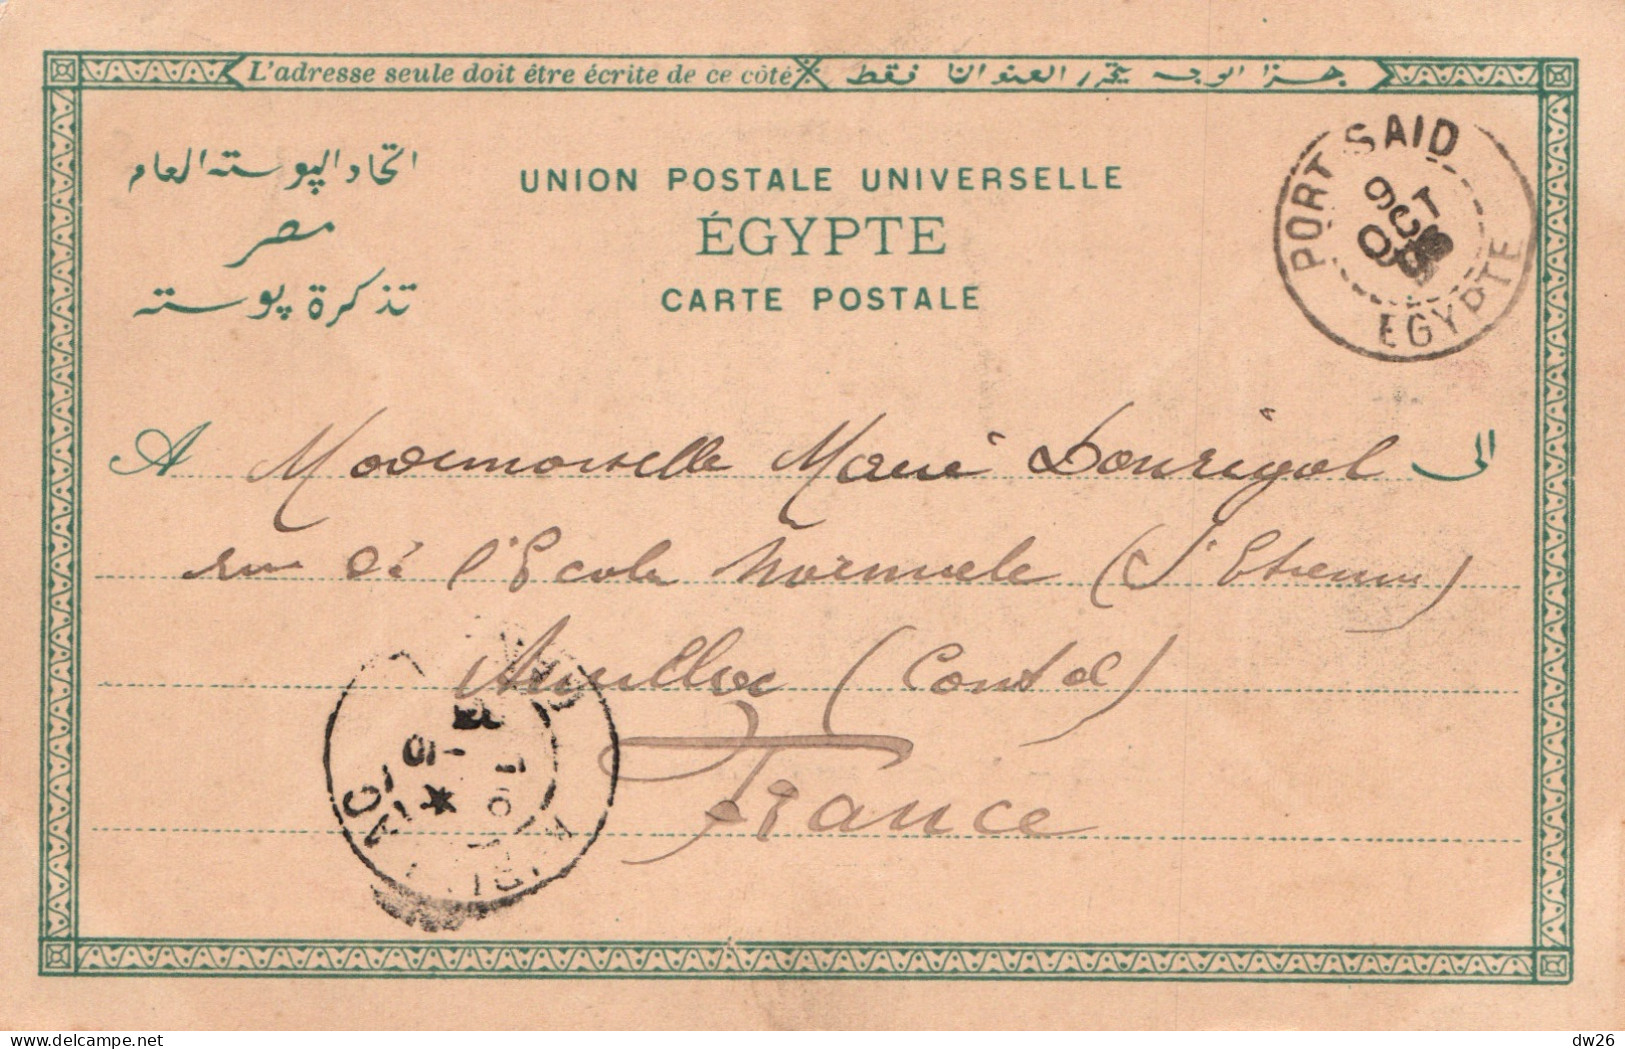 L'adresse seule doit être écrite de ce côté هذا الوجه يحرر العنوان فقط
اتحاد البوسته العام
مصر
تذكرة بوسته
UNION POSTALE UNIVERSELLE
ÉGYPTE
CARTE POSTALE
PORT SAID
9 OCT
EGYPTE
A Mademoiselle Marie Dourigal الى
rue de l'Ecole Normale (St Etienne)
Aurillac (Cantal)
France
dw26